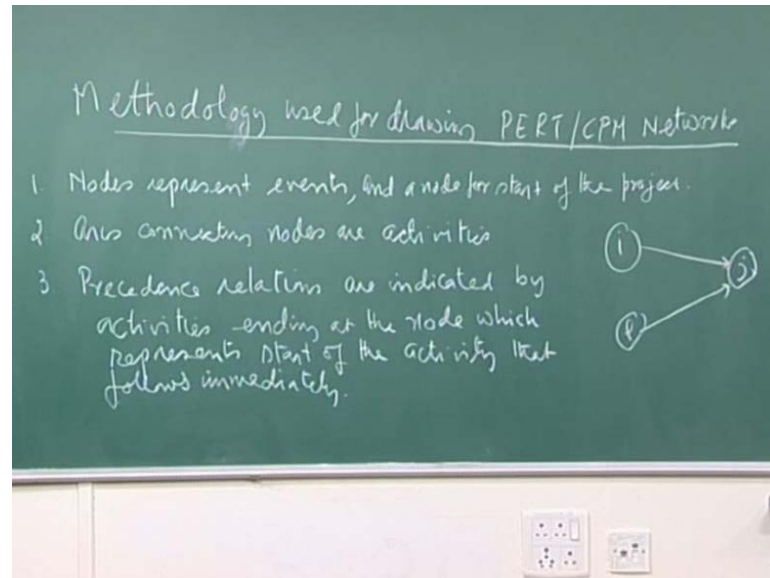 Methodology used for drawing PERT/CPM Networks
1. Nodes represent events, and a node for start of the project.
2. Arcs connecting nodes are activities
3 Precedence relations are indicated by
activities ending at the node which
represents start of the activity that
follows immediately.
i
j